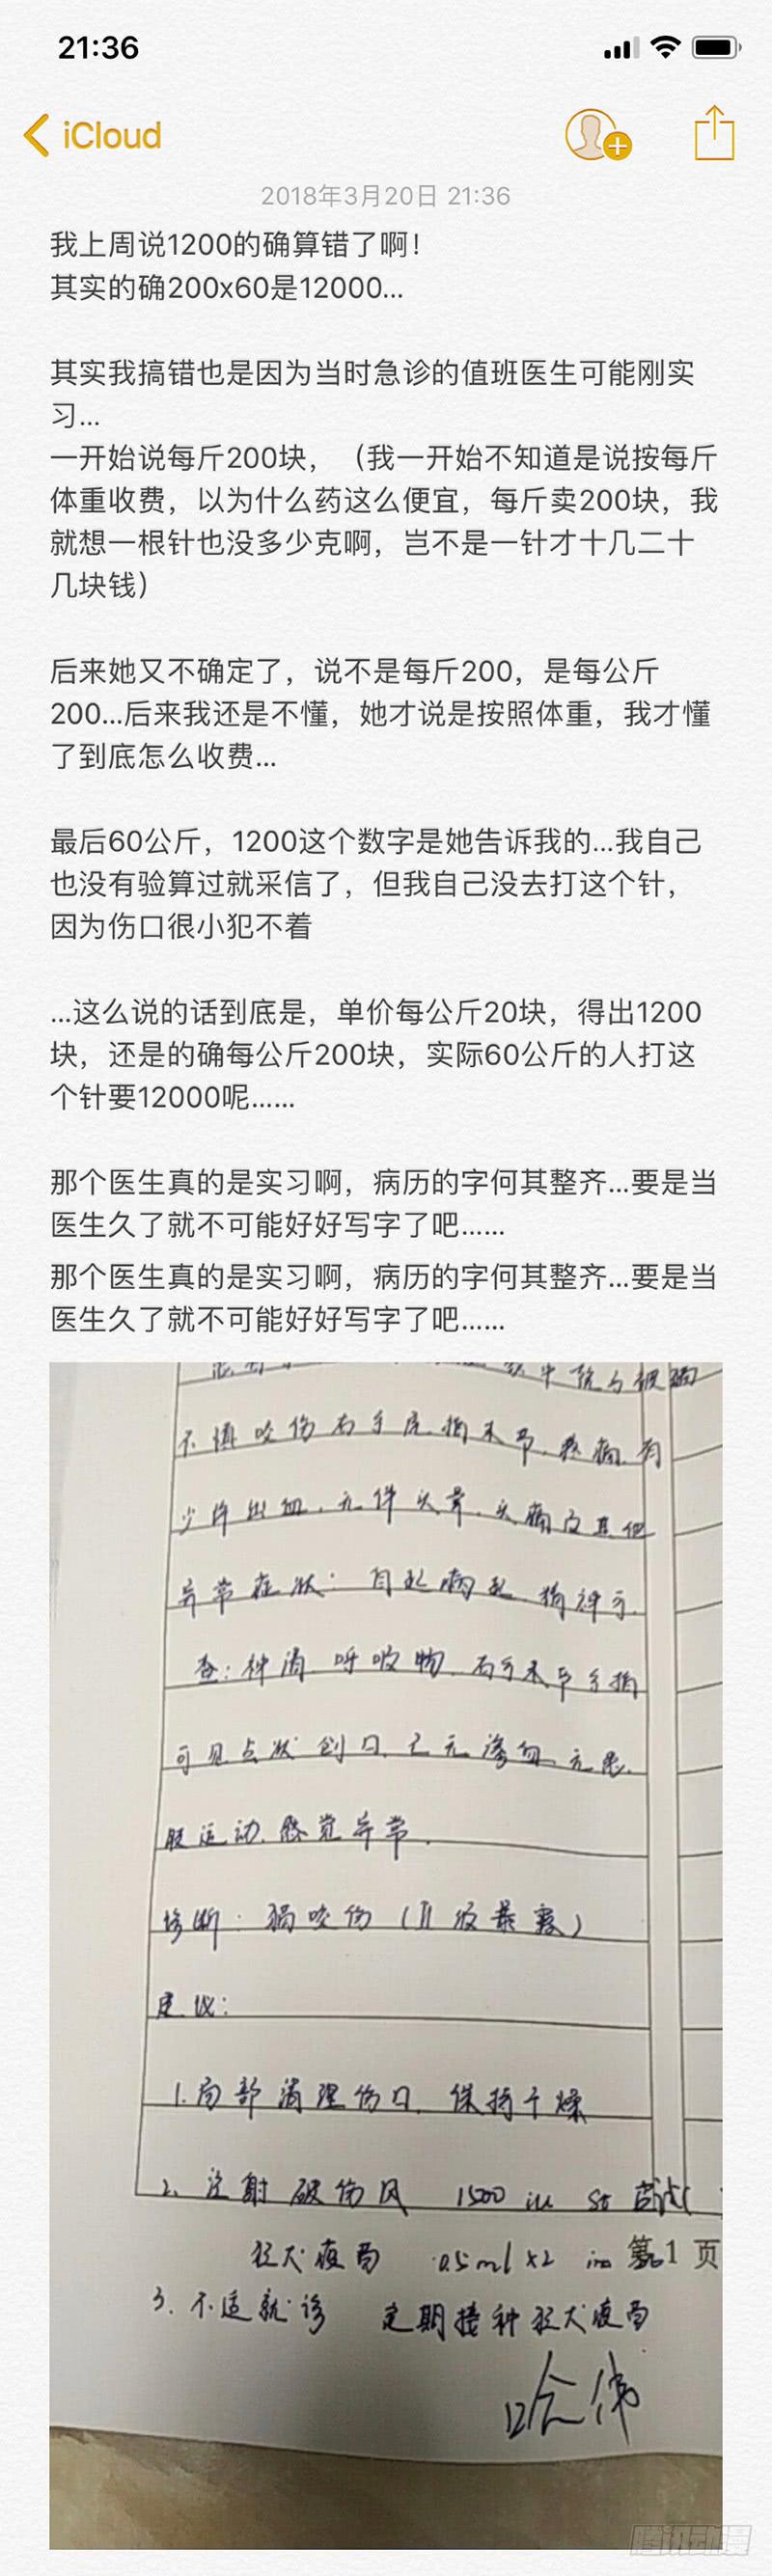 21:36
iCloud
2018年3月20日 21:36
我上周说1200的确算错了啊！
其实的确200x60是12000...
其实我搞错也是因为当时急诊的值班医生可能刚实
习...
一开始说每斤200块，（我一开始不知道是说按每斤
体重收费，以为什么药这么便宜，每斤卖200块，我
就想一根针也没多少克啊，岂不是一针才十几二十
几块钱）
后来她又不确定了，说不是每斤200，是每公斤
200...后来我还是不懂，她才说是按照体重，我才懂
了到底怎么收费...
最后60公斤，1200这个数字是她告诉我的...我自己
也没有验算过就采信了，但我自己没去打这个针，
因为伤口很小犯不着
...这么说的话到底是，单价每公斤20块，得出1200
块，还是的确每公斤200块，实际60公斤的人打这
个针要12000呢......
那个医生真的是实习啊，病历的字何其整齐...要是当
医生久了就不可能好好写字了吧......
那个医生真的是实习啊，病历的字何其整齐...要是当
医生久了就不可能好好写字了吧......
不慎咬伤右手 指末节.疼痛.有
少许出血.无伴头晕.头痛及其他
异常症状.
查:神清 呼吸 右手末节手指
可见点状创口.已无渗血.无
肢运动.感觉异常.
诊断:猫咬伤(II级暴露)
建议:
1.局部清理伤口.保持干燥
2.注射破伤风 1500 iu st
狂犬疫苗 0.5ml x2 im 第1页
3.不适就诊 定期接种狂犬疫苗
腾讯动漫